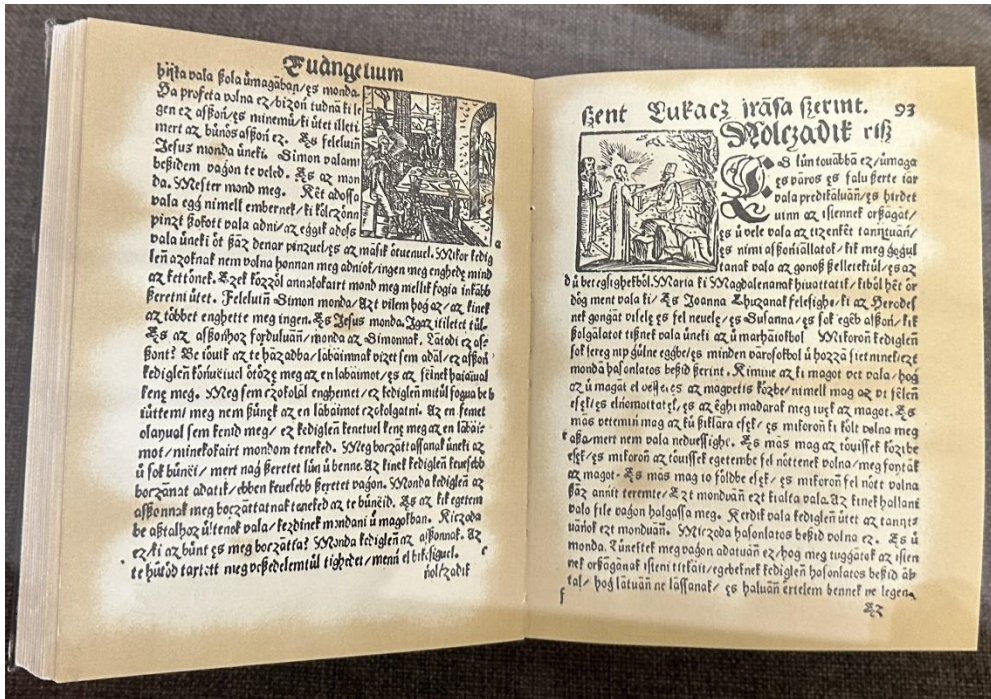 Euangelium
hijta vala ßola ůmagában/ ęs monda.
Ha profeta volna ez/ bizoń tudná ki le
gen ez aßßoń/ ęs minemű/ ki űtet illeti
mert az bűnös aßßoń ez. Ęs feleluiń
Jesus monda űneki. Simon valami
beßidem vaǵon te veled. Ęs az mon
da. Mester mond meg. Kęt adossa
vala egǵ nimell embernek/ ki kőlczőnn
pinzt ßokott vala adni/ az eǵǵik adoss
vala űneki őt ßáz denar pinzuel/ ęs az másik őtuenuel. Mikor kedig
leń azoknak nem volna honnan meg adniok/ ingen meg enghedę mind
az kettőnek. Ezek kőzzől annakokairt mond meg mellik fogia inkább
ßeretni űtet. Feleluiń Simon monda/ Azt vilem hoǵ az/ az kinek
az tőbbet enghette meg ingen. Ęs Jesus monda. Igaz itiletet tűl.
Ęs az aßßońhoz forduluáń/ monda az Simonnak. Látodi ez aß-
ßont? Be iőuik az te házadba/ lábaimnak vizet sem adál/ ez aßßoń
kedigleń kőńueiuel őtőzę meg az en lábaimot/ ęs az feinek haiáiual
kenę meg. Meg sem czokolál enghemet/ ez kedigleń mitűl fogua be
iűttem/ meg nem ßűnęk az en lábaimot czokolgatni. Az en femet
olaÿual sem kenid meg/ ez kedigleń kenetuel kenę meg az en lábai-
mot/ minekokairt mondom teneked. Meg borzátt assanak űneki az
ű sok bűnei/ mert naǵ ßeretet lűn ű benne. Az kinek kedigleń keuesebb
borzánat adatik/ ebben keuesebb ßeretet vaǵon. Monda kedigleń az
aßßonnak meg borzáttat nak teneked az te bűneid. Ęs az kik egetem
be aßtalhoz űltenek vala/ kezdinek mondani ű magokban. Kiczoda
ez/ ki az bűnt ęs meg borzátta? Monda kedigleń az aßßonnak. Az
te hűtőd tartott meg veßedelemtűl tighedet/ menń el bikisiguel.
ńol/zadik
ßent Lukacz jrása ßerint. 93
Nolczadik riß
ES lűn továbbá ez/ űmaga
ęs város ęs falu ßerte iár
vala predikáluáń/ ęs hirdet
uinn az istennek orßágát/
ęs ű vele vala az tizenkęt tanituáń/
ęs nimi aßßoniállatok/ kik meg ǵoǵul
tanak vala az gonoß ßelletektűl/ ęs az
ű betegsighekből. Maria ki Magdalenanak hiuattatik/ kiből hęt őr
dőg ment vala ki/ Ęs Joanna Chuzanak felesighe/ ki az Herodes
nek gongát viselę ęs fel neuelę/ ęs Susanna/ ęs sok eǵęb aßßoń/ kik
ßolgálatot tesznek vala űneki az ű marháiokból Mikoron kedigleń
sok sereg nip gűlne eggbe/ ęs minden városokból ű hozzá sietninek/ ezt
mondá hasonlatos beßid ßerint. Kimine az ki magot vet vala/ hoǵ
az ű magát el vesse/ ęs az magvetis kőzbe/ nimell mag az vt filęń
esęk/ ęs elńomattatęk/ ęs az ęghi madarak meg iuęk az magot. Ęs
más vetemin mag az kű ßiklára esęk/ ęs mikoron ki kőlt volna meg
aßa/ mert nem vala neduessighe. Ęs más mag az tőuissek kőzibe
esęk/ ęs mikoron az tőuissek egetembe fel nőttenek volna/ meg foÿták
az magot. Ęs más mag io főldbe esęk/ ęs mikoron fel nőtt volna
ßáz annit teremte/ Ezt monduán ezt kialta vala. Az kinek hallani
valo file vaǵon halgassa meg. Kerdik vala kedigleń űtet az tanit-
uáńok ezt monduáń. Miczoda hasonlatos beßid volna ez. Ęs ű
monda. Tűnektek meg vaǵon adatuáń ez/ hoǵ meg tuggátok az isten
nek orßágának isteni titkáit/ egebeknek kedigleń hasonlatos beßid ál-
tal/ hoǵ látuáń ne lássanak/ ęs haluáń ęrtelem bennek ne legen.
f
Ez